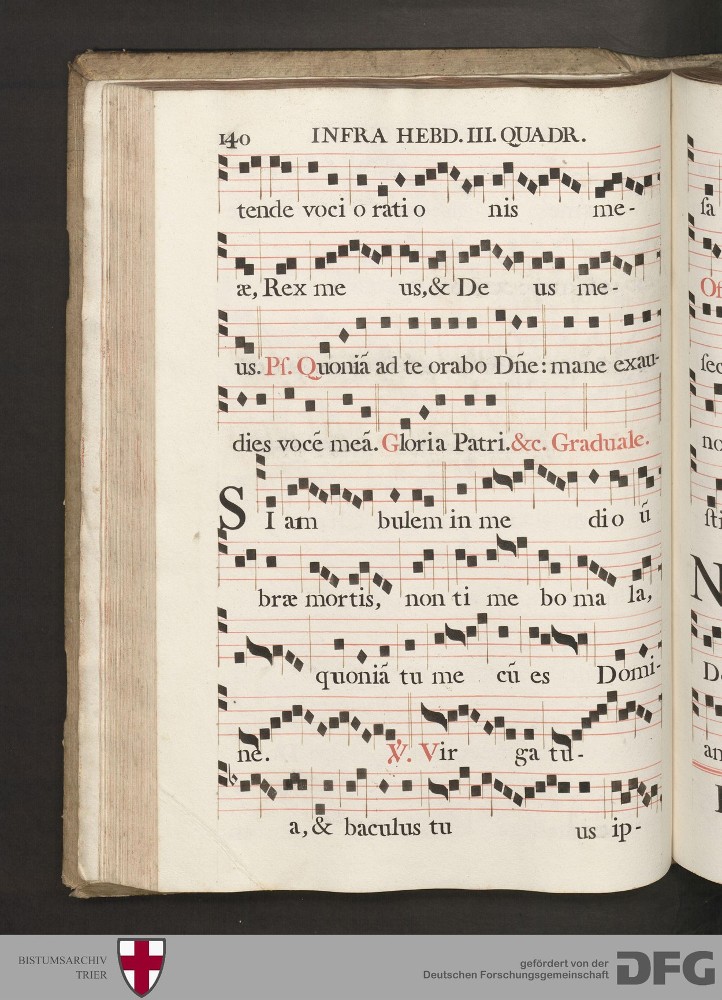 140 INFRA HEBD. III. QUADR.
tende voci o rati o nis me-
æ, Rex me us,& De us me-
us. Ps. Quoniã ad te orabo Dñe: mane exau-
dies vocẽ meã. Gloria Patri.&c. Graduale.
SI am bulem in me dio ũ
bræ mortis, non ti me bo ma la,
quoniã tu me cũ es Domi-
ne. ℣. Vir ga tu-
a, & baculus tu us ip-
ſa
ſec
no
ſti
N
an
BISTUMSARCHIV
TRIER
gefördert von der
Deutschen Forschungsgemeinschaft
DFG